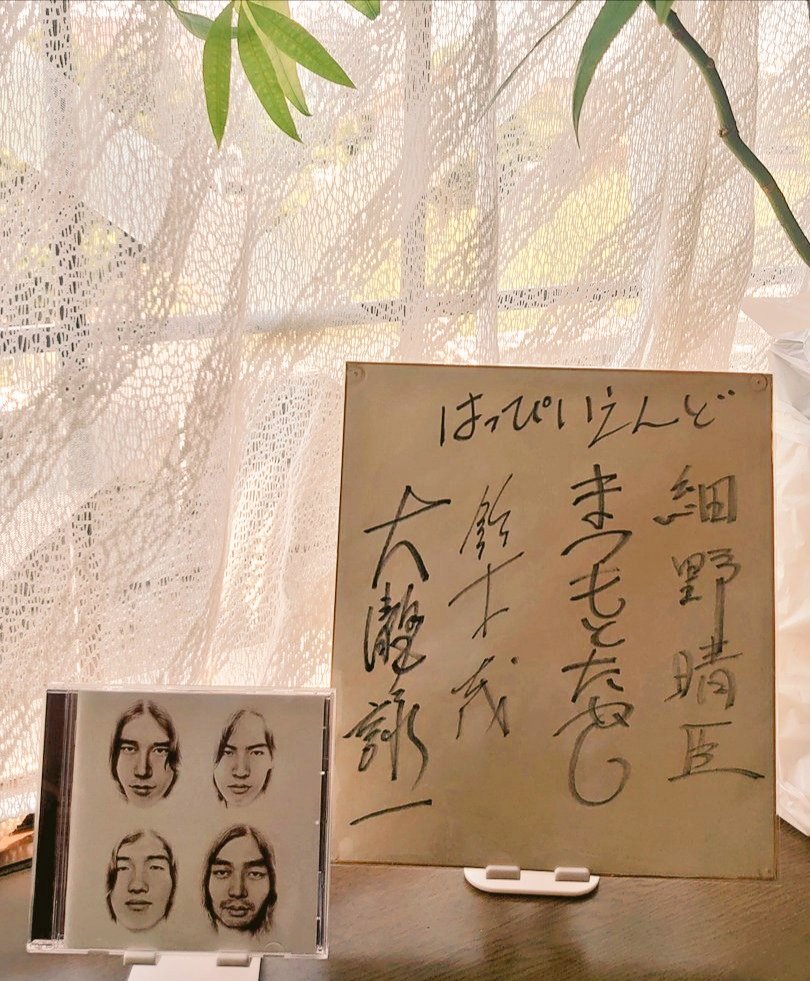 はっぴいえんど
細野晴臣
まつもとたかし
鈴木茂
大瀧詠一